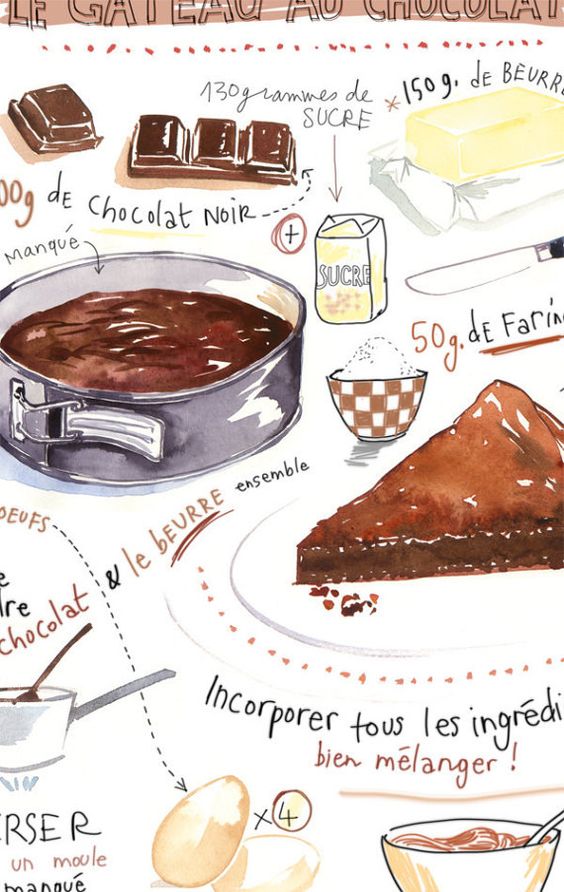 LE GÂTEAU AU CHOCOLAT
130grammes de
SUCRE
* 150g. de BEURRE
00g de Chocolat Noir
+
manqué
SUCRE
50g. de Farin
OEUFS
chocolat & le BEURRE ensemble
Incorporer tous les ingrédi
bien mélanger !
x4
ERSER
un moule
manqué